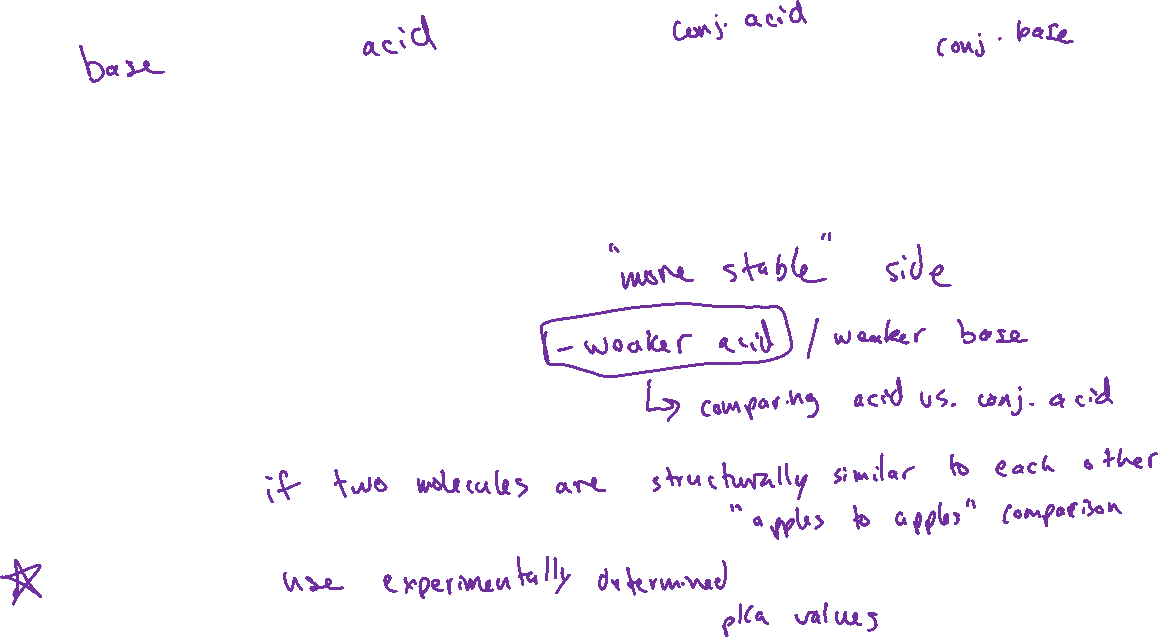 base acid conj. acid conj. base
"more stable" side
- weaker acid / weaker base
↳ comparing acid vs. conj. acid
if two molecules are structurally similar to each other
"apples to apples" comparison
☆ use experimentally determined
pKa values